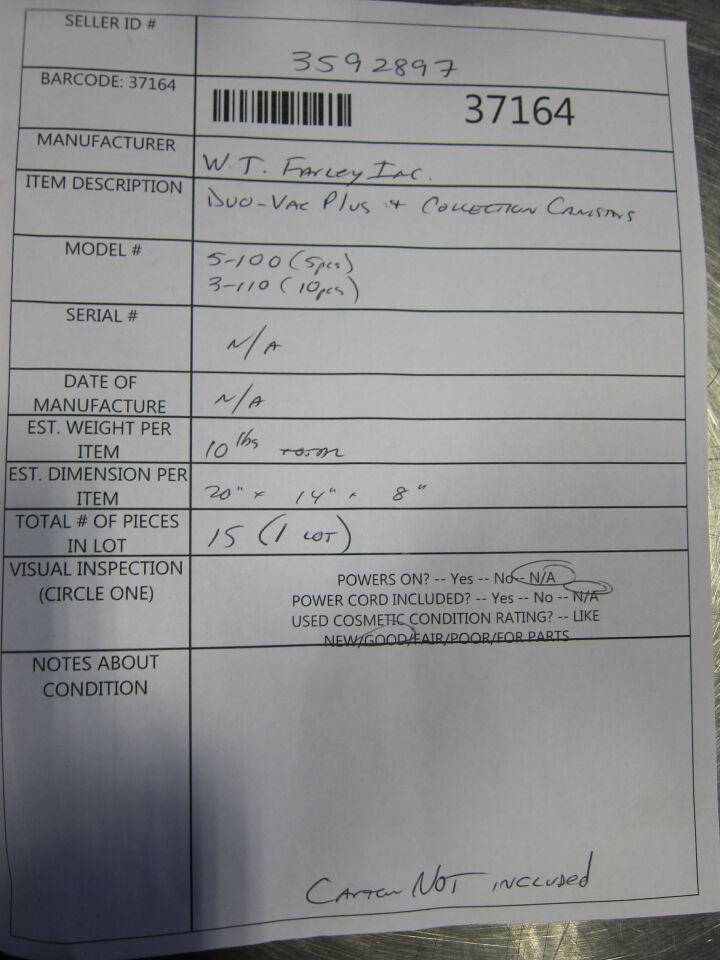 SELLER ID #
3592897
BARCODE: 37164
37164
MANUFACTURER
W.T. Farley Inc.
ITEM DESCRIPTION
Duo-Vac Plus + Collection Canisters
MODEL #
5-100 (5pcs)
3-110 (10pcs)
SERIAL #
N/A
DATE OF
MANUFACTURE
N/A
EST. WEIGHT PER
ITEM
10 lbs total
EST. DIMENSION PER
ITEM
20" x 14" x 8"
TOTAL # OF PIECES
IN LOT
15 (1 LOT)
VISUAL INSPECTION
(CIRCLE ONE)
POWERS ON? -- Yes -- No -- N/A
POWER CORD INCLUDED? -- Yes -- No -- N/A
USED COSMETIC CONDITION RATING? -- LIKE
NEW/GOOD/FAIR/POOR/FOR PARTS
NOTES ABOUT
CONDITION
NOT included